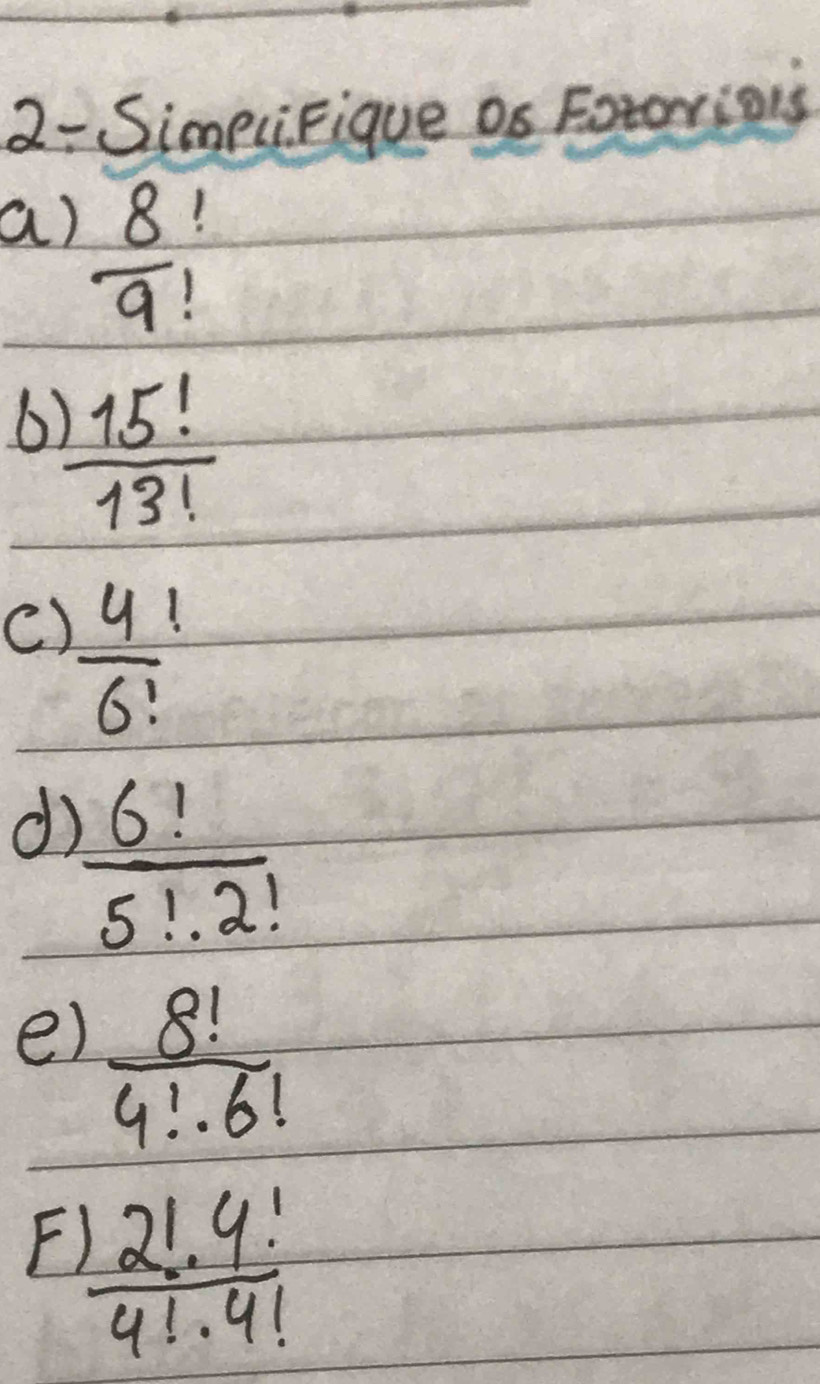 2- Simplifique os Fatorriais
a) 8!
9!
b) 15!
13!
c) 4!
6!
d) 6!
5!.2!
e) 8!
4!.6!
F) 2!.4!
4!.4!